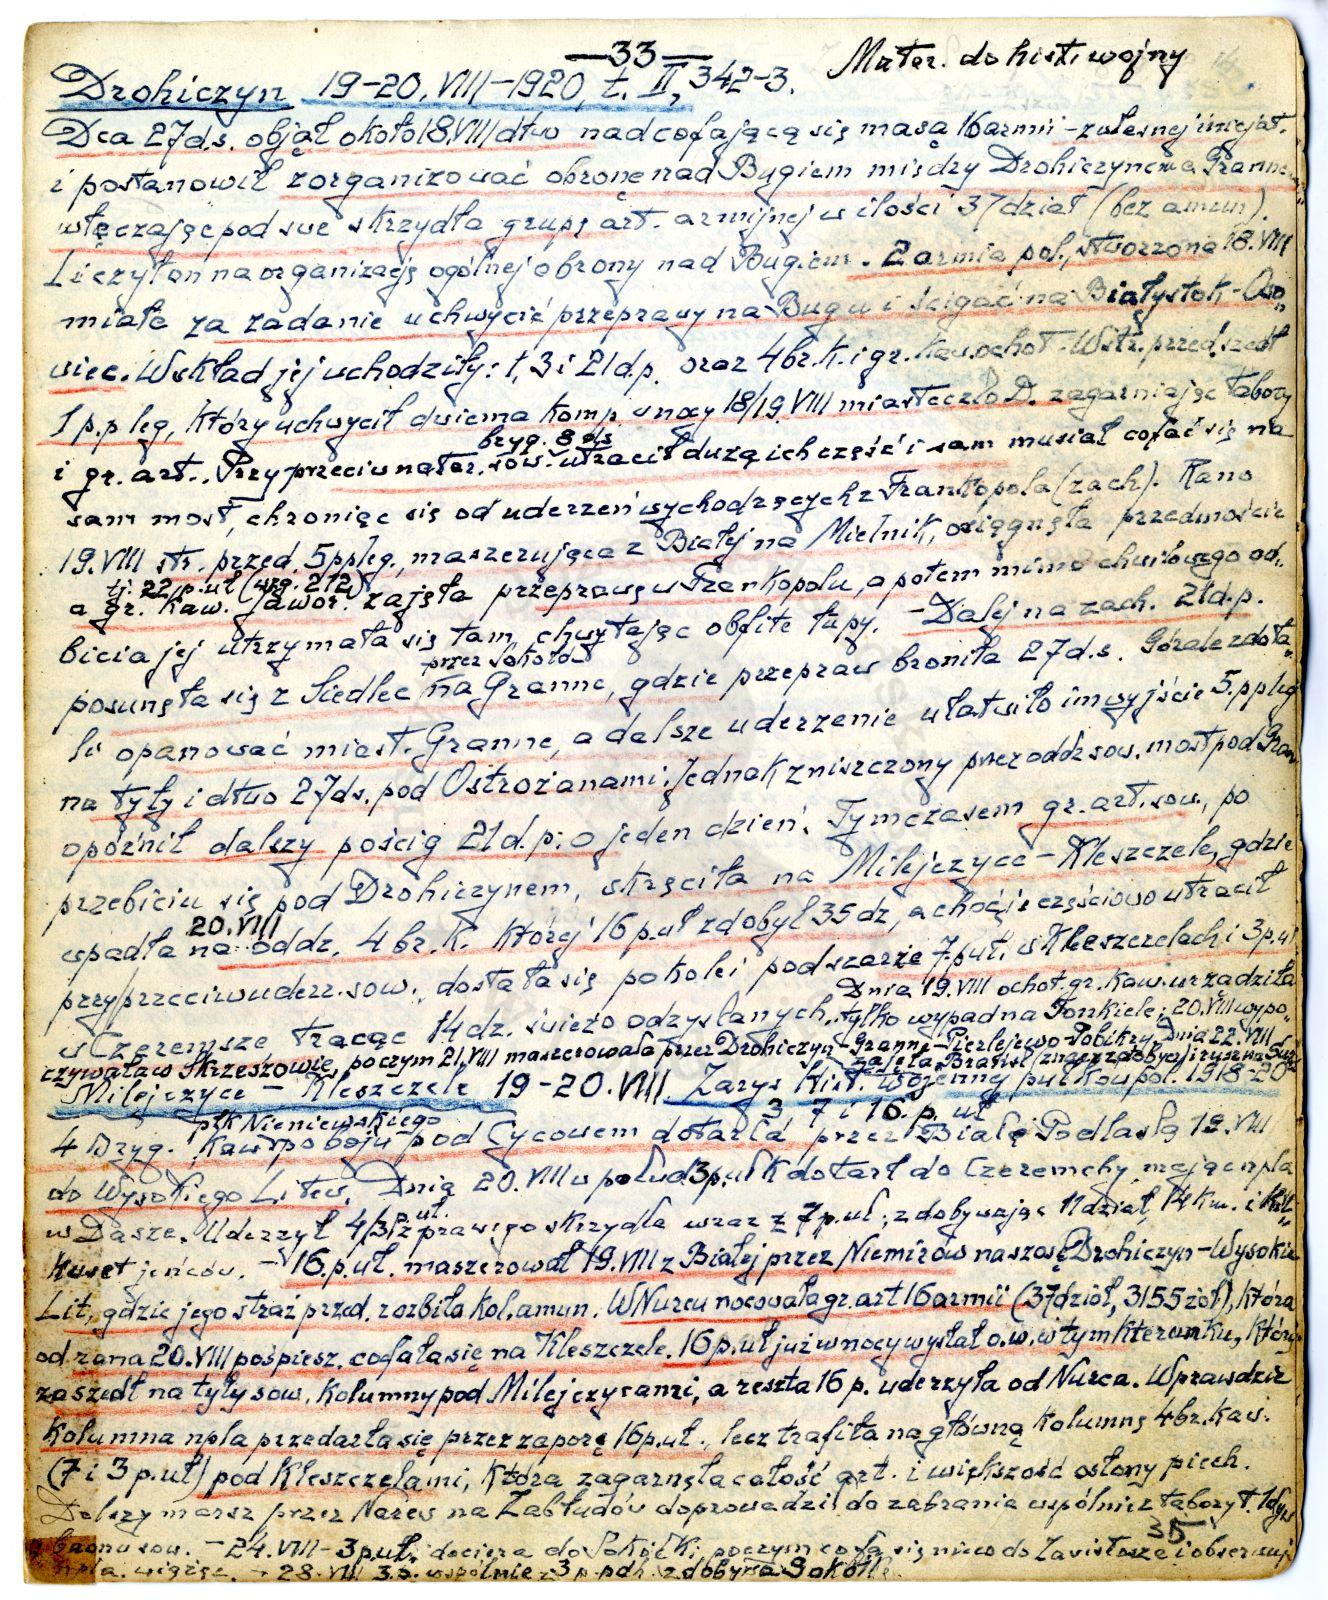 —33—
Mater. do hist. wojny
Drohiczyn 19–20.VIII–1920, t. II, 342–3.
Dca 27d.s. objął około 18.VIII dtwo nad cofającą się masą 16 armii – z własnej inicjat.
i postanowił zorganizować obronę nad Bugiem między Drohiczynem a Granne
włączając pod swe skrzydła grupę art. armijnej w ilości 37 dział (bez amun).
Liczył on na organizację ogólnej obrony nad Bugiem. 2 armia pol., stworzona 18.VIII
miała za zadanie uchwycić przeprawy na Bugu i ścigać na Białystok – Oso„
wiec. W skład jej wchodziły: 1, 3 i 21d.p. oraz 4br.k. i gr. kaw. ochot. W str. przed. szedł
1 p.p leg, który uchwycił dwiema komp w nocy 18/19.VIII miasteczko D. zagarniając tabory
bryg. 8 ds
i gr. art.. Przy przeciwnater. sow. utracił dużą ich część i sam musiał cofać się na
sam most, chroniąc się od uderzeń wychodzących z Frankopola (zach). Rano
19.VIII str. przed. 5ppleg., maszerująca z Białej na Mielnik, osiągnęła przedmoście
tj. 22 p.uł (wzg. 212)
a gr. kaw. Jawor. zajęła przeprawę w Frankopolu, a potem mimo chwilowego od„
bicia jej utrzymała się tam, chwytając obfite łupy. – Dalej na zach. 21d.p.
przez Sokołów
posunęła się z Siedlec na Granne, gdzie przepraw broniła 27d.s. Górale zdoła„
li opanować miast. Granne, a dalsze uderzenie ułatwiło im wyjście 5.ppleg
na tyły i dtwo 27ds. pod Ostrożanami. Jednak zniszczony przez oddz sow. most pod Gran
opóźnił dalszy pościg 21d.p. o jeden dzień. Tymczasem gr. art. sow., po
przebiciu się pod Drohiczynem, skręciła na Milejczyce – Kleszczele, gdzie
20.VIII
wpadła na oddz. 4 br.k. której 16 p.uł zdobył 35 dz, a choć je częściowo utracił
przy przeciwuderz. sow., dostała się po kolei pod szarże 7.puł. w Kleszczelach i 3p.uł
Dnia 19.VIII ochot. gr. kaw. urządziła
w Czeremsze tracąc 14 dz. świeżo odzyskanych. tylko wypad na Tonkiele; 20.VIII wypo„
czywała w Skrzeszowie, poczym 21.VIII maszerowała przez Drohiczyn – Granne – Pierlejewo – Pobikry. Dnia 22.VIII
zajęła Brańsk (znacz. zdobycz) i rusz. na Sur
Milejczyce – Kleszczele 19–20.VIII Zarys hist. wojennej pułków pol. 1918–20
3, 7 i 16. p. uł
płk Nieniewskiego
4 bryg. kaw. po boju pod Cycowem dotarła przez Białę Podlaską 19.VIII
do Wysokiego Litew. Dnia 20.VIII w połud 3p.uł dotarł do Czeremchy, mając npla
p.uł.
w Dasze. Uderzył 4/3 z prawego skrzydła wraz z 7p.uł; zdobywając 11 dział, 14 km. i kil„
kuset jeńców. – 16.p.uł. maszerował 19.VIII z Białej przez Niemirów na szosę Drohiczyn – Wysokie
Lit, gdzie jego straż przed. rozbiła kol. amun. W Nurcu nocowała gr. art 16 armii (37 dział, 3155 żoł), która
od rana 20.VIII pośpiesz. cofała się na Kleszczele. 16p.uł już w nocy wysłał o.w. w tym kierunku, który
zaszedł na tyły sow. kolumny pod Milejczycami, a reszta 16 p. uderzyła od Nurca. Wprawdzie
kolumna npla przedarła się przez zaporę 16p.uł., lecz trafiła na główną kolumnę 4br.kaw.
(7 i 3 p.uł) pod Kleszczelami, która zagarnęła całość art. i większość osłony piech.
Dalszy marsz przez Narew na Zabłudów doprowadził do zabrania wspólnie z tabory t. 1 dyw
baonu sow. – 24.VIII – 3p.uł. dociera do Sokółki poczym cofa się nieco do Zawistowsze i obserwuj
npla. więżąc. – 28.VIII 3.p. wspólnie z 3 p.pdh. zdobywa Sokółkę.
35